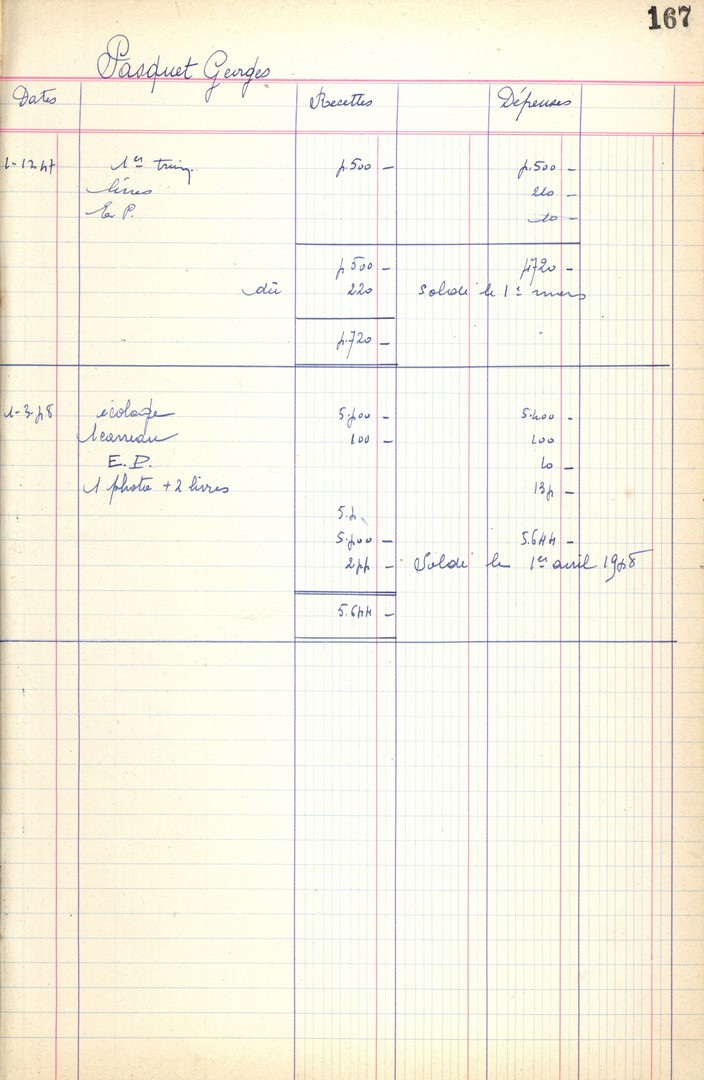 167
Pasquet Georges
Dates Recettes Dépenses
1-12.47 1er trim. 4.500 — 4.500 —
livres 210 —
E. P. 10 —
4.500 — 4.720 —
dû 220 soldé le 1er mars
4.720 —
1-3.48 écolage 5.400 — 5.400 -
1 carreau 100 — 100
E.P. 10 —
1 photo + 2 livres 134 —
5.4
5.400 — 5.644 —
244 — Soldé le 1er avril 1948
5.644 —